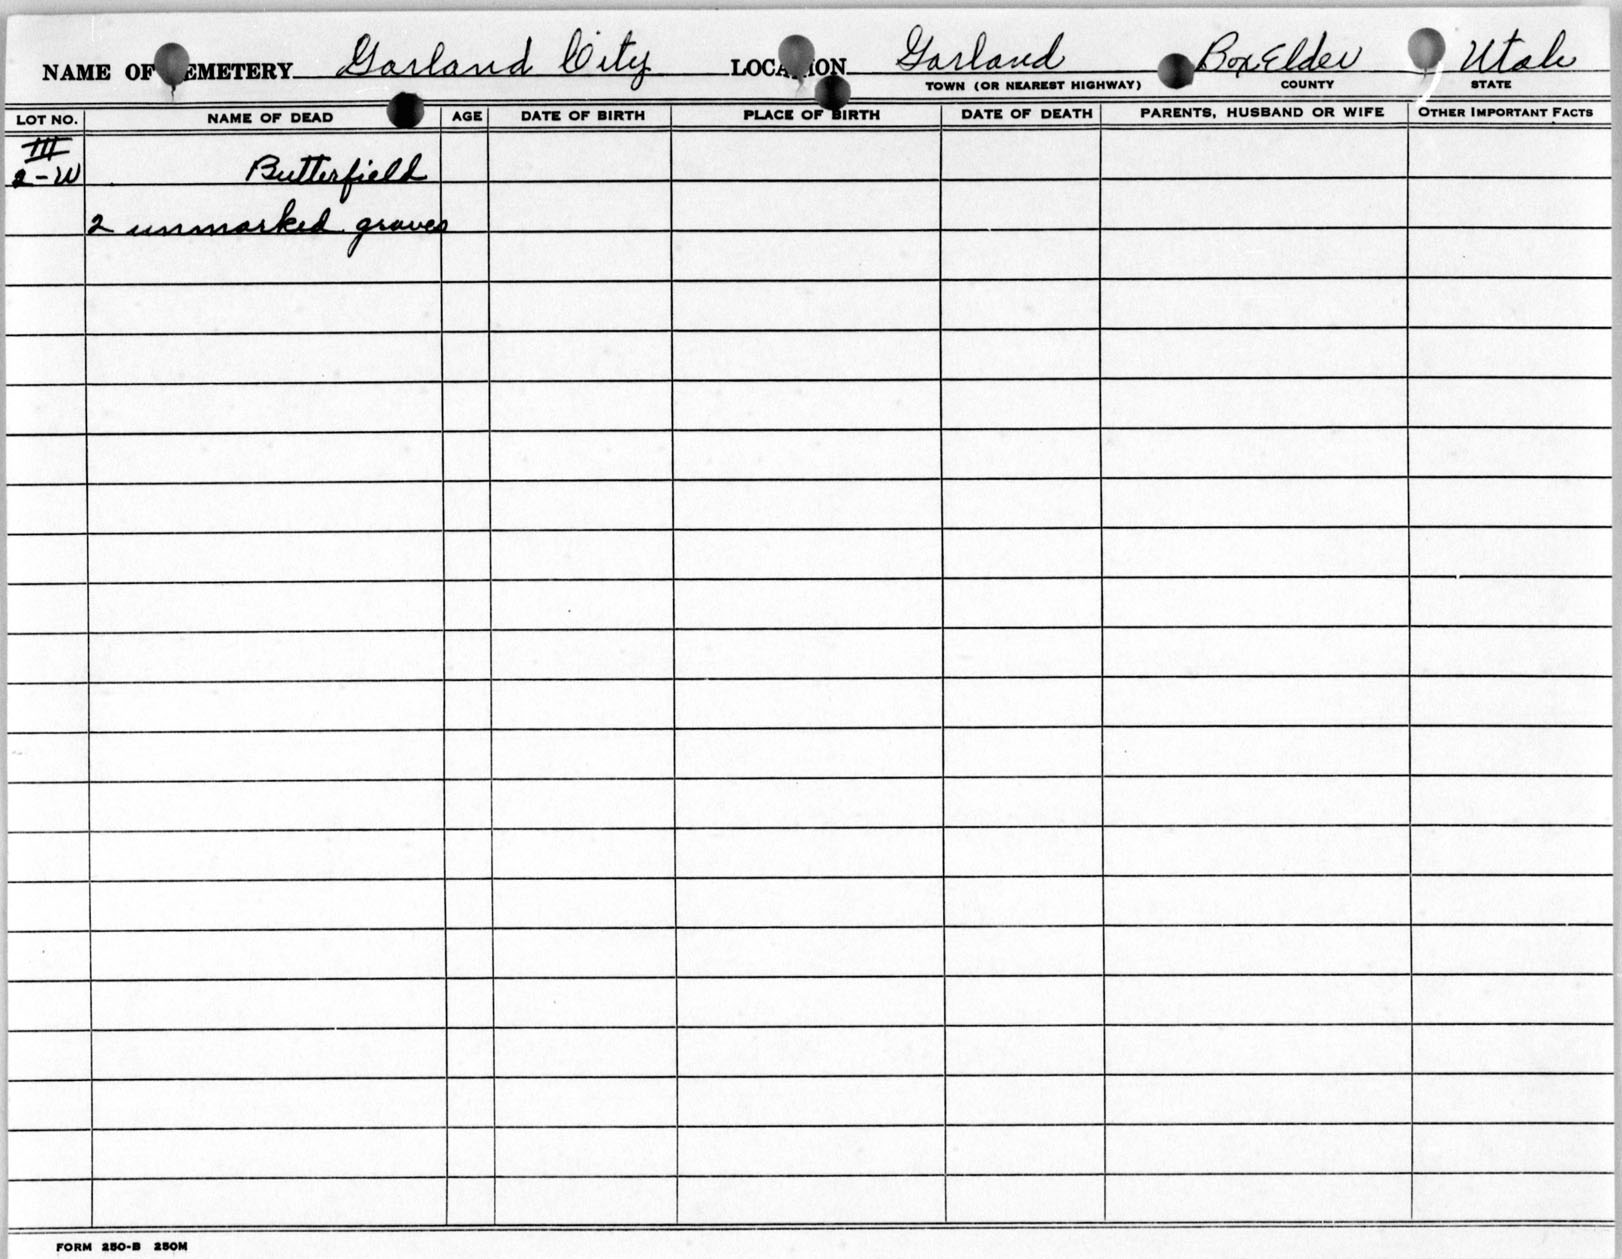 NAME OF CEMETERY Garland City LOCATION Garland Box Elder Utah
TOWN (OR NEAREST HIGHWAY) COUNTY STATE
LOT NO. NAME OF DEAD AGE DATE OF BIRTH PLACE OF BIRTH DATE OF DEATH PARENTS, HUSBAND OR WIFE OTHER IMPORTANT FACTS
III
2-W Butterfield
2 unmarked graves
FORM 250-B 250M